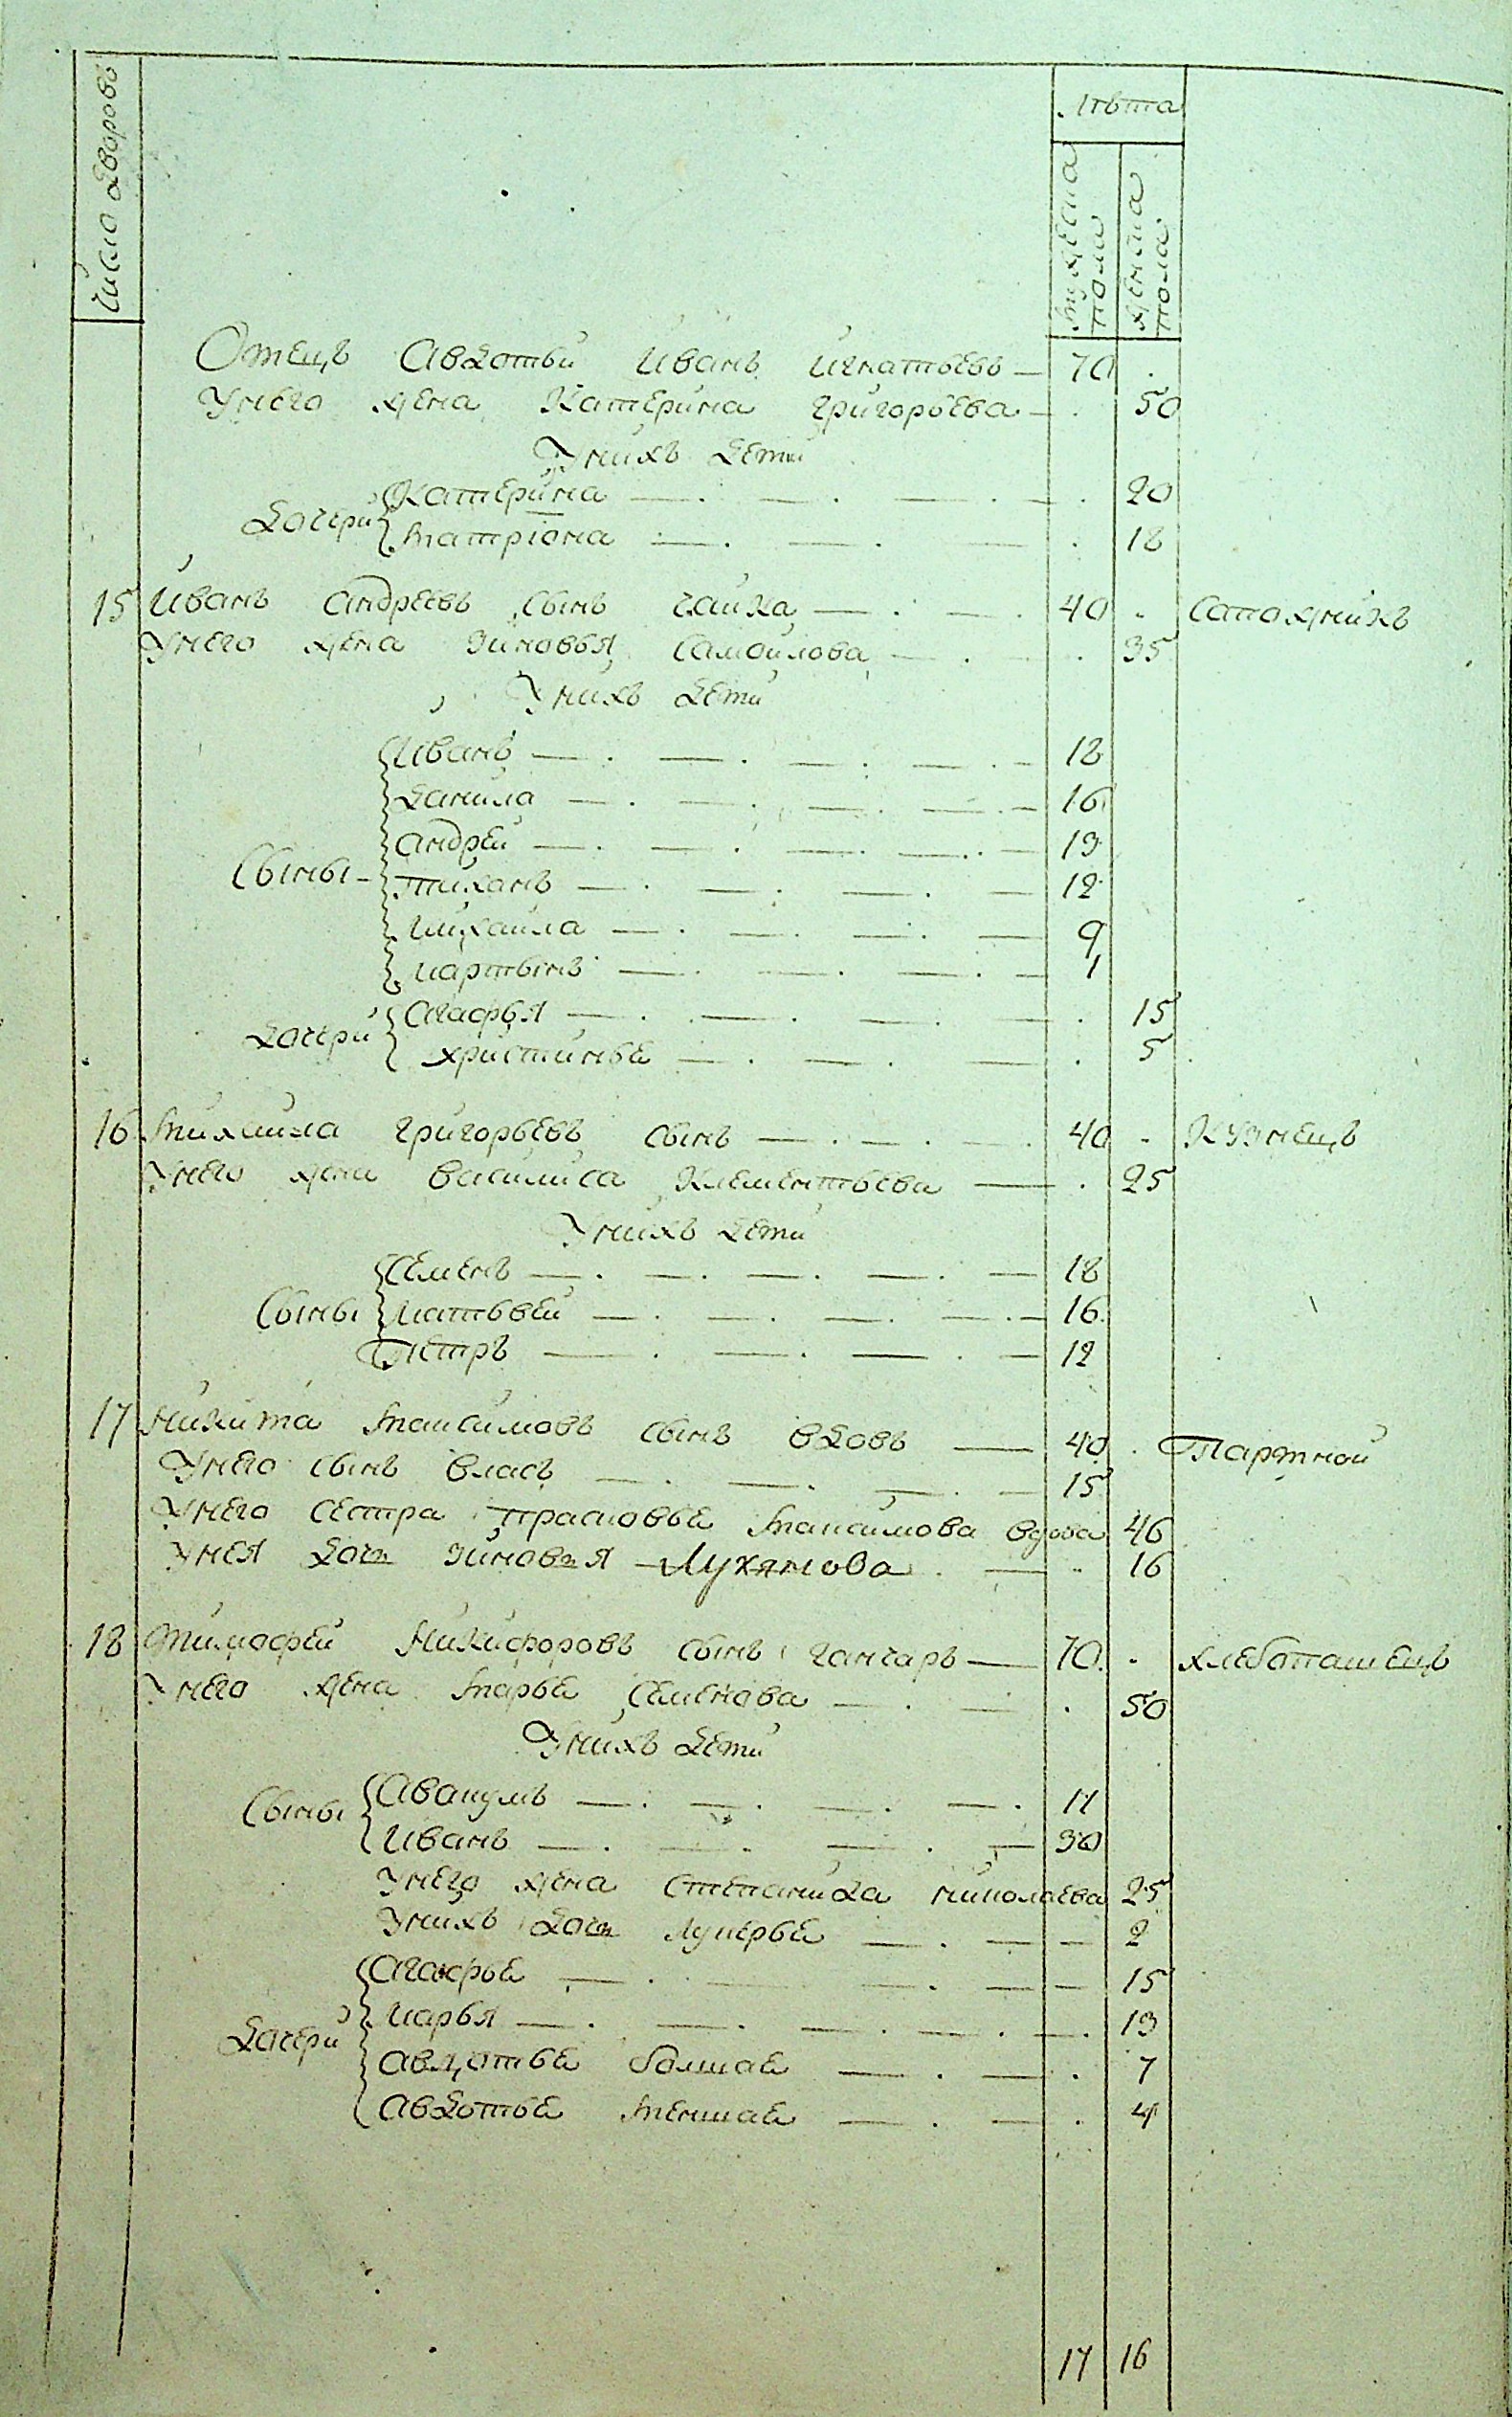 Число дворовъ
Лѣта
мужеска пола
женска пола
Отецъ Авдотьи Иванъ Игнатьевъ — 70
У него жена Катерина Григорьева — 50
У нихъ дети
Дочери
Катерина — 20
Матріона — 18
15 Иванъ Андреевъ сынъ Чайка — 40 Сапожникъ
У него жена Зиновья Самойлова — 35
У нихъ дети
Сыны
Иванъ — 18
Данила — 16
Андрей — 13
Тиханъ — 12
Михайла — 9
Мартынъ — 1
Дочери
Агафья — 15
Христинье — 5
16 Михайла Григорьевъ сынъ — 40 Кузнецъ
У него жена Василиса Клементьева — 25
У нихъ дети
Сыны
Семенъ — 18
Матьвей — 16
Петръ — 12
17 Никита Максимовъ сынъ вдовъ — 40 Партной
У него сынъ Власъ — 15
У него сестра Прасковье Максимова вдова 46
У нея дочь Зиновья Лукянова — 16
18 Тимофей Никифоровъ сынъ Ганчаръ — 70 хлебопашецъ
У него жена Марье Семенова — 50
У нихъ дети
Сыны
Авакумъ — 11
Иванъ — 30
У него жена Степанида Николаева 25
У нихъ дочь Лукерье — 2
Дочери
Агафье — 15
Марья — 13
Авдотье болшае — 7
Авдотье меншае — 4
17 16